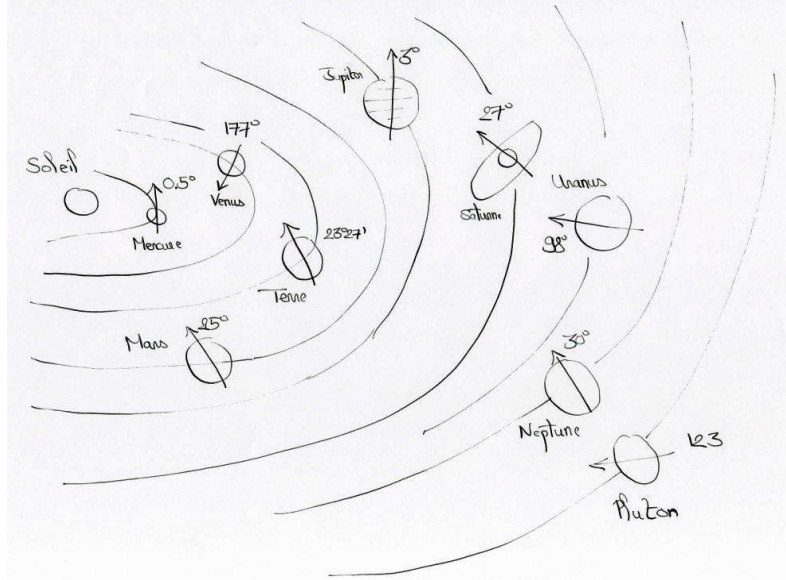 Soleil
0.5°
Mercure
177°
Venus
23°27'
Terre
25°
Mars
3°
Jupiter
27°
Saturne
Uranus
98°
30°
Neptune
123
Pluton